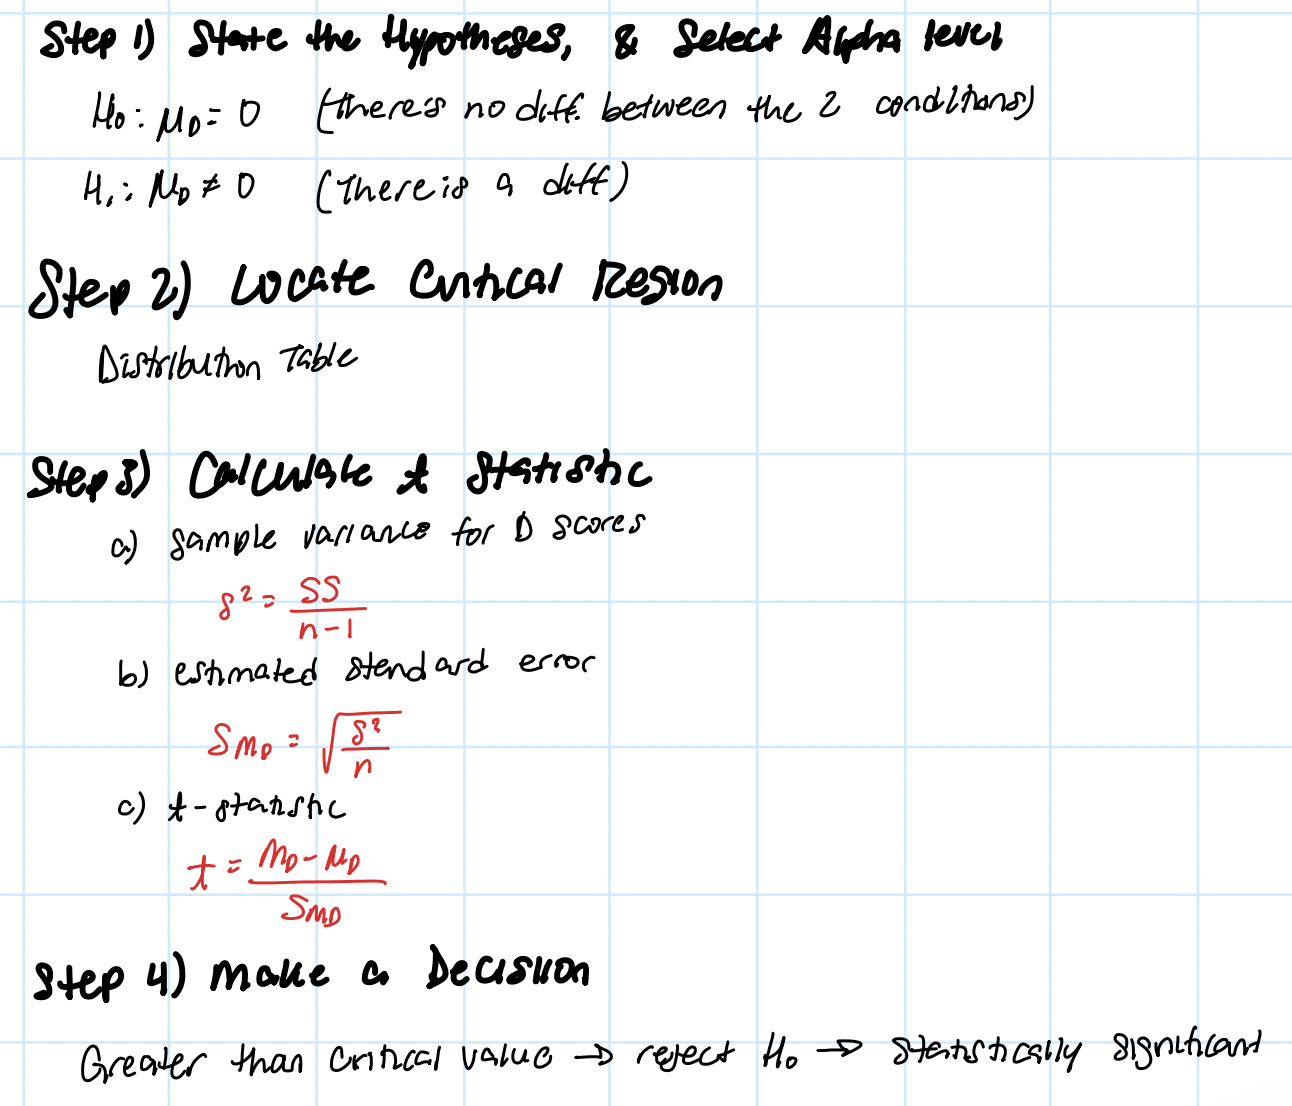 Step 1) State the Hypotheses, & Select Alpha level
H₀: μ_D = 0 (there's no diff. between the 2 conditions)
H₁: μ_D ≠ 0 (there is a diff)
Step 2) Locate Critical Region
Distribution Table
Step 3) Calculate t statistic
a) sample variance for D scores
s² = SS / n-1
b) estimated standard error
S_{M_D} = √(s² / n)
c) t-statistic
t = M_D - μ_D / S_{M_D}
Step 4) Make a Decision
Greater than critical value → reject H₀ → statistically significant